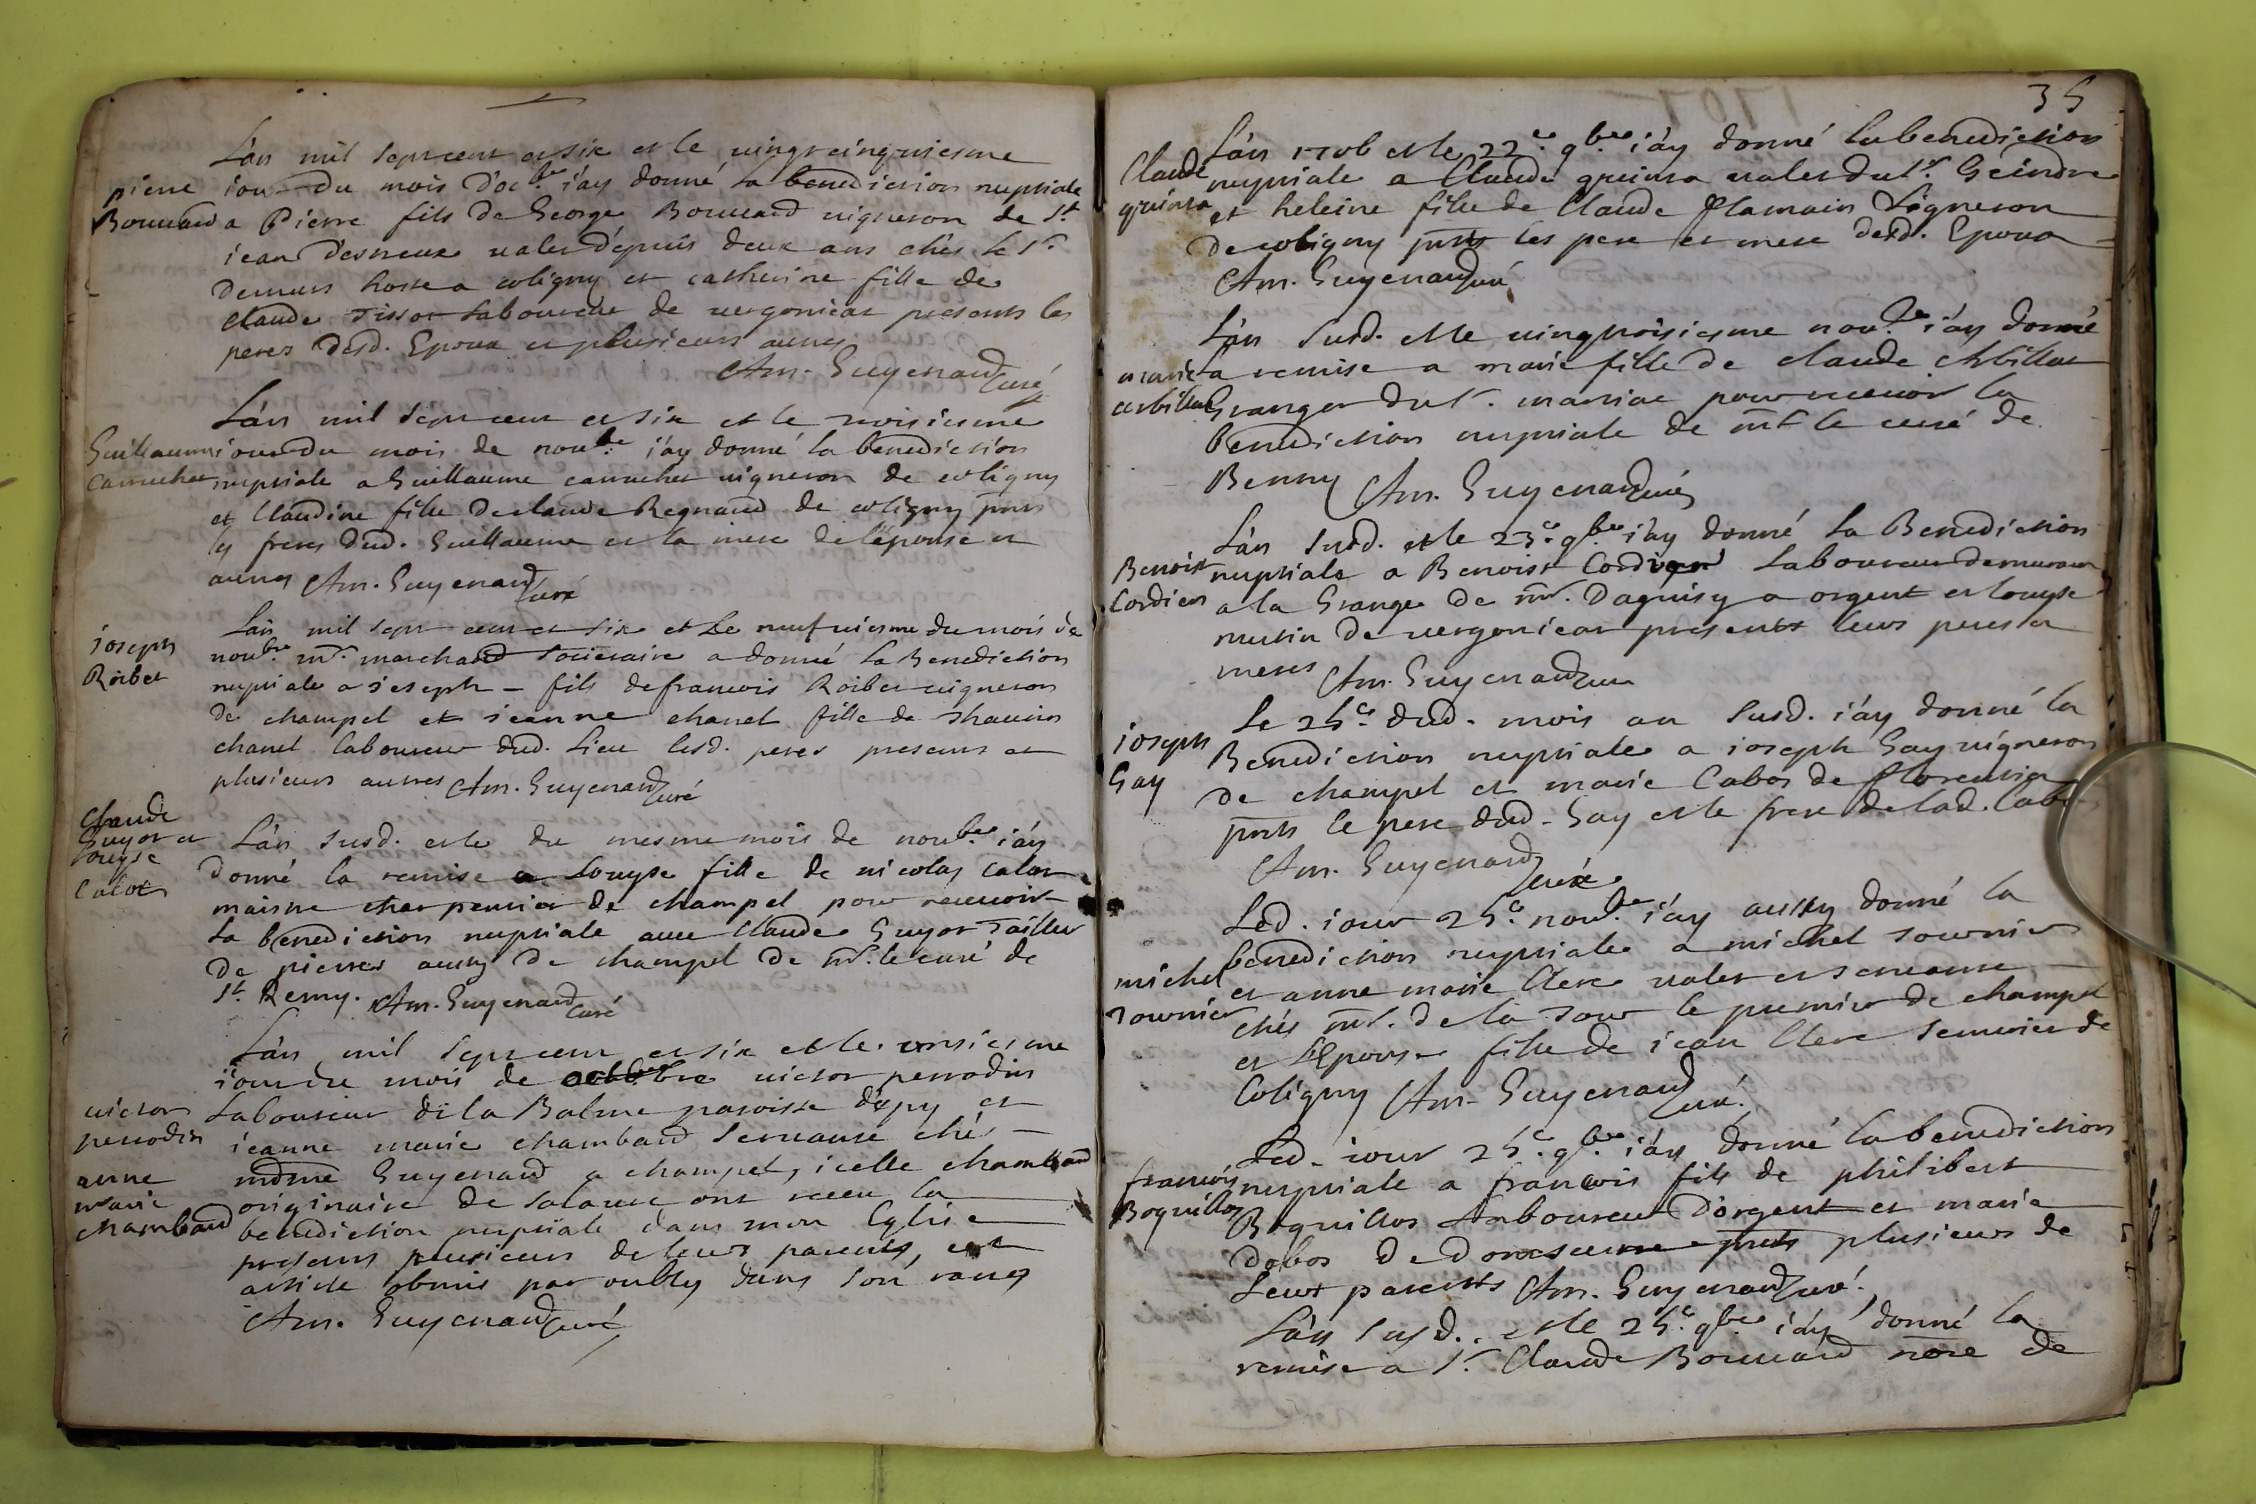 L'an mil sept cent et six et le vingtcinquiesme
pierre
Bouuard
iour du mois d'oc.bre i'ay donné la benediction nuptiale
a Pierre fils de George Bouuard vigneron de St
iean valet depuis deux ans chés le Sr
Demurs hoste a coligny et catherine fille de
Claude Tissot Laboureur de vergonicat presents les
peres desd. Epoux et plusieurs autres
Am. Guyenard curé
L'an mil sept cent et six et le troisiesme
Guillaume
Camuchet
iour du mois de nou.bre i'ay donné la benediction
nuptiale a Guillaume camuchet vigneron de coligny
et Claudine fille de claude Regnaud de coligny pnts
les freres dud. Guillaume et la mere de l'épouse et
autres Am. Guyenard curé
ioseph
Roibet
L'an mil sept cent et six et Le neufuiesme du mois de
nou.bre mr. marchand societaire a donné La Benediction
nuptiale a ioseph - fils de francois Roibet vigneron
de champel et ieanne chanel fille de
chanel laboureur dud. lieu lesd. peres presents et
plusieurs autres Am. Guyenard curé
Claude
Guyot et
louyse
Calot
L'an susd. et le du mesme mois de nou.bre i'ay
donné la remise a Louyse fille de nicolas calot
maistre charpentier de champel pour recevoir
la benediction nuptiale avec Claude Guyot Tailleur
de pierres aussy de champel de mr. le curé de
St. Remy. Am. Guyenard curé
L'an mil sept cent et six et le onsiesme
iour du mois de octobre victor perrodin
victor
perrodin
anne
marie
chambard
Laboureur de la Balme paroisse d'épy et
ieanne marie chambard servante chés
mdme Guyenard a champel, icelle chambard
originaire de ont receu la
benediction nuptiale dans mon Eglise
presents plusieurs de leurs parents, cet
article obmis par oubly dans son rang
Am. Guyenard curé
35
L'an 1706 et le 22e. 9bre i'ay donné la benediction
Claude
quinsa
nuptiale a Claude quinsa valet du Sr. Geindre
et heleine fille de Claude flamain Vigneron
de coligny pnts les pere et mere desd. Epoux
Am. Guyenard curé
L'an susd. et le vingtroisiesme nou.bre i'ay donné
marie
arbillat
La remise a marie fille de claude Arbillat
Granger du Sr. pour recevoir la
benediction nuptiale de mr le curé de
Benny Am. Guyenard curé
L'an susd. et le 23e. 9bre i'ay donné la Benediction
Benoist
Cordier
nuptiale a Benoist Cordier Laboureur demurant
a la Grange de mr. Daguisy a orgent et louyse
mutin de vergonicat presents leurs peres et
meres Am. Guyenard curé
Le 25e. dud. mois an susd. i'ay donné la
ioseph
Gay
Benediction nuptiale a ioseph Gay vigneron
de champel et marie Cabos de florentia
pnts le pere dud. Gay et le frere de lad.
Am. Guyenard curé
Led. iour 25e. nou.bre i'ay aussy donné la
benediction nuptiale a michel tournier
michel
tournier
et anne marie Clerc valet et servante
chés mr. de la tour le premier de champel
et L'Epouse fille de iean Clerc serrurier de
Coligny Am. Guyenard curé.
Led. iour 25e. 9bre i'ay donné la benediction
francois
Boquillos
nuptiale a francois fils de philibert
Boquillos Laboureur d'orgent et marie
dobos de pnts plusieurs de
Leurs parents Am. Guyenard curé.
L'an susd. et le 25e. 9bre i'ay donné la
remise a Sr. Claude Bouuard nore de